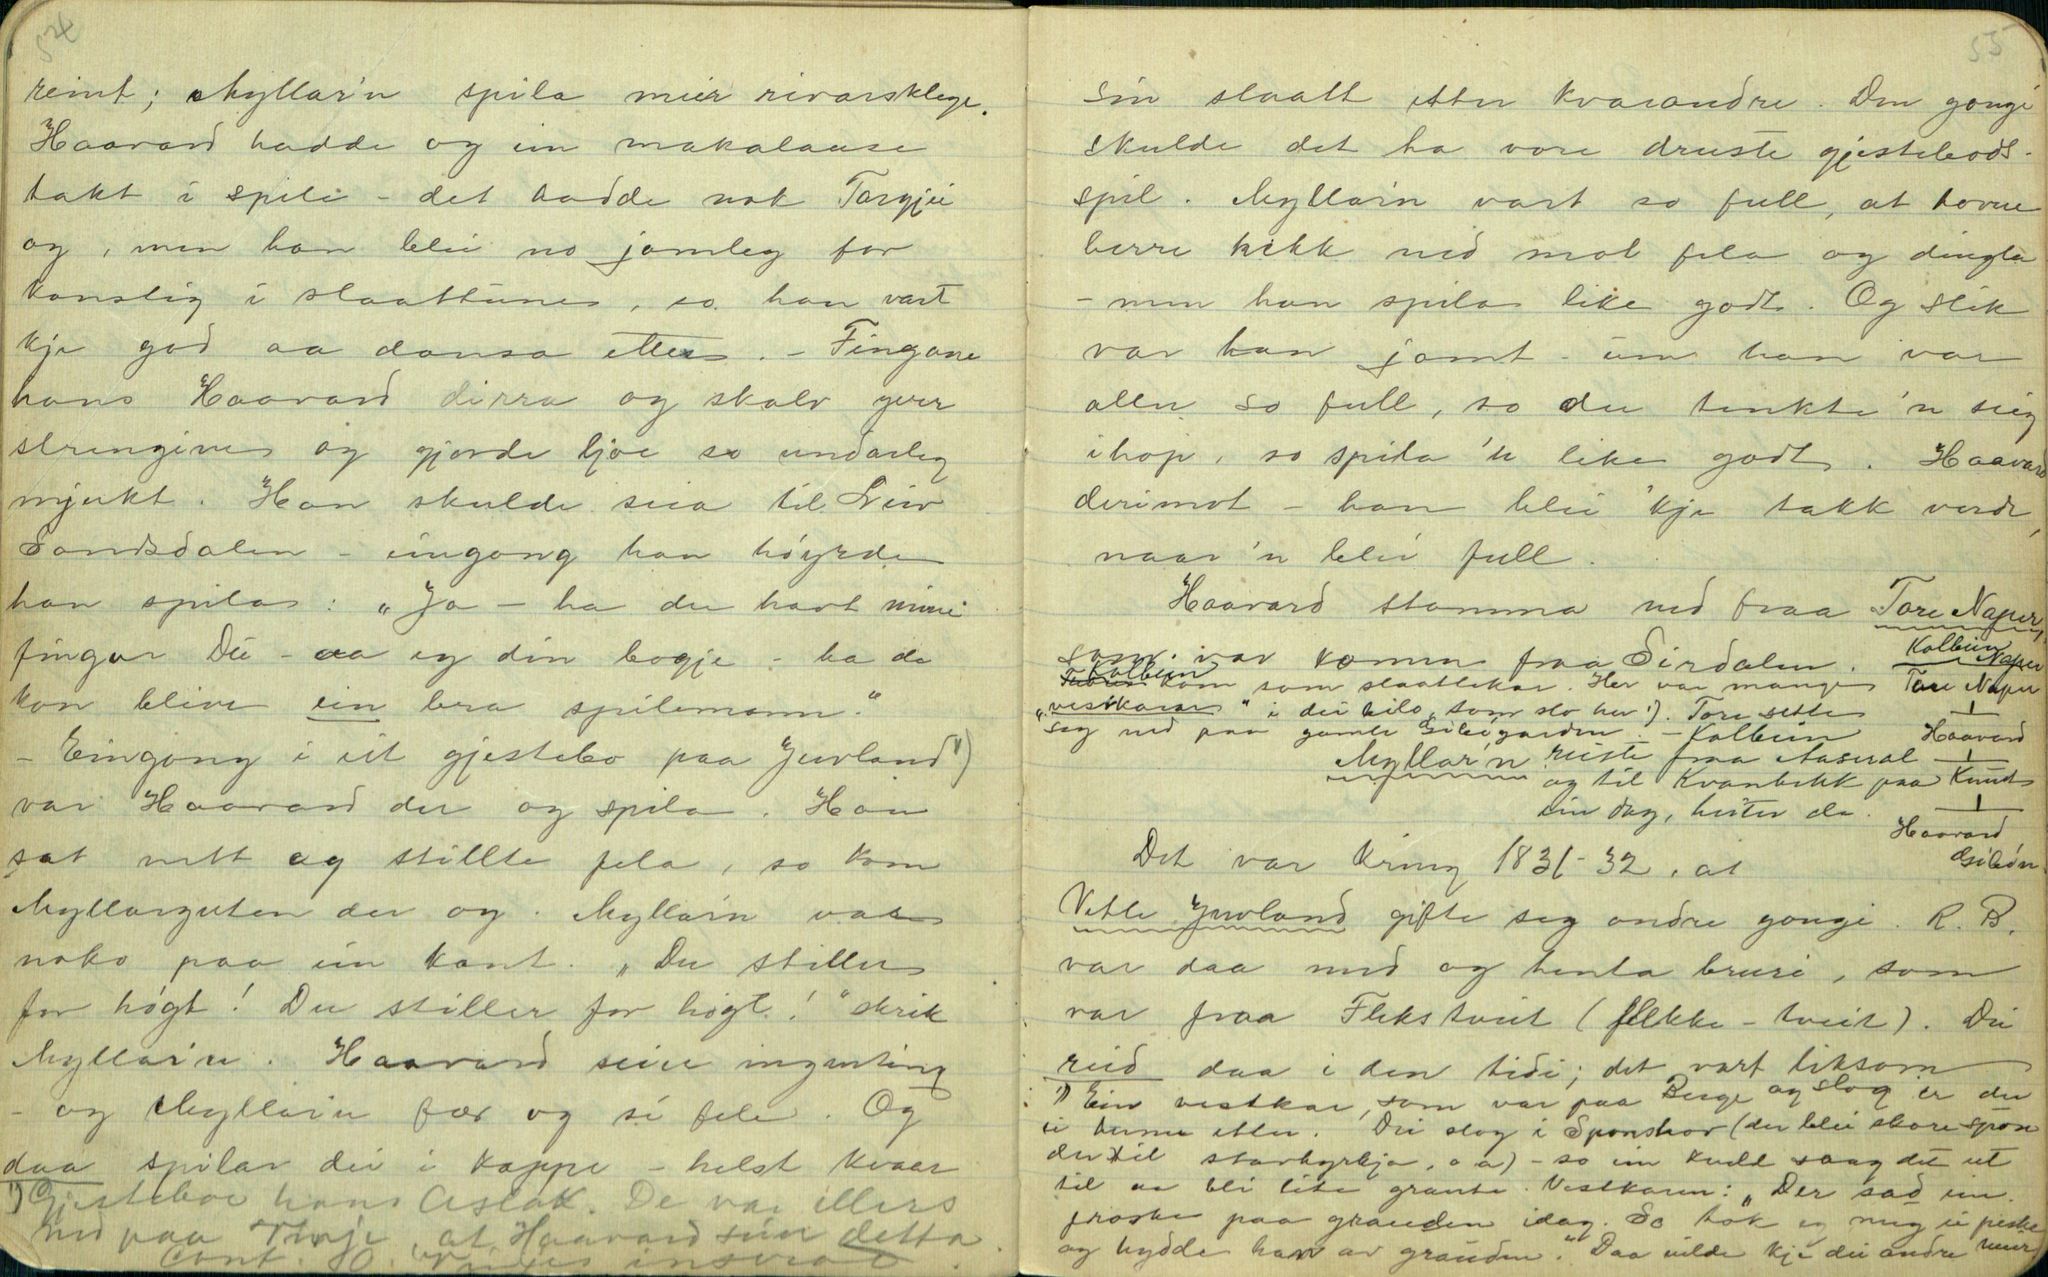 54
reint; Myllar'n spila meir rivarsklege.
Haavard hadde og ein makalause
takt i spele - det hadde nok Torgjei
og, men han blei no jamleg for
konstig i slaattune, so han vart
kje god aa dansa etter. - Fingane
hans Haavard dirra og skalv yver
strengine og gjorde ljoe so undarleg
mjukt. Han skulde seia til
Sandsdalen - eingong han höyrde
han spila: "Ja - ha du havt mine
fingar Du - aa eg din bogje - ha de
kon blive ein bra spilemann."
- Eingong i eit gjestebo paa Juvland 1)
var Haavard der og spila. Han
sat nett og stillte fela, so kom
Myllarguten der og. Myllar'n var
noko paa ein kant. "Du stiller
for högt! Du stiller for högt!" skrik
Myllar'n. Haavard seier ingenting
- og Myllar'n fær og si fele. Og
daa spilar dei i kappe - helst kvaer
1) Gjesteboe hans Aslak. De var ellers
ned paa at Haavard
55
sin slaatt etter kvarandre. Den gongi
skulde det ha vore druste gjestebods-
spil. Myllar'n vart so full, at hovue
berre hekk ned mot fela og dingla
- men han spila like godt. Og slik
var han jamt - um han var
aller so full, so der tenkte 'n seg
ihop, so spila 'n like godt. Haavard
derimot - han blei 'kje takk verdt,
naar 'n blei full.
Haavard stamma ned fraa Tore Naper,
som var komen fraa Sirdalen. Kolbein Naper
Kolbein kom som slaattekar. Her var mange Tore Naper
"vestkarar" i dei bilo, som slo her 1). Tore sette
seg ned paa gamle Gibögarden. - Kolbein Haavard
Myllar'n reiste fraa Aaseral
og til Kvanbekk paa Knut
ein dag, heiter de. Haavard
Giböen
Det var kring 1831-32, at
Vetle Juvland gifte seg andre gongi. R. B.
var daa med og henta bruri, som
var fraa Flekstveit (Flekke-tveit). Dei
reid daa i den tidi; det vart liksom
1) Ein vestkar, som var paa Berge og slog er der
ei terme etter. Dei slog i Sponskor (der blei skore spon
der til starkyrkja, o a) - so ein kveld saag det ut
til aa bli lite grante. Vestkaren: "Der sad ein
froske paa grauden idag. So tok eg meg ei peske
og hydde han av grauden." Daa vilde kje dei andre meir